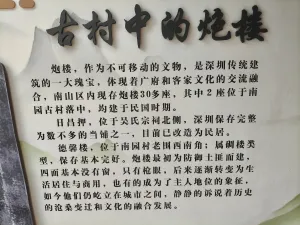 古村中的炮楼
炮楼，作为不可移动的文物，是深圳传统建
筑的一大瑰宝，体现着广府和客家文化的交流融
合，南山区内现存炮楼30多座，其中2座位于南
园古村落中，均建于民国时期。
日昌押，位于吴氏宗祠北侧，深圳保存完整
为数不多的当铺之一，目前已改造为民居。
德馨楼，位于南园村老围西南角；属碉楼类
型，保存基本完好。炮楼最初为防御土匪而建，
四面基本没有窗，只有枪眼，后来逐渐转变为生
活居住与商用，也有的成为了主人地位的象征，
如今他们仍屹立在城市之间，静静的诉说着历史
的沧桑变迁和文化的融合发展。